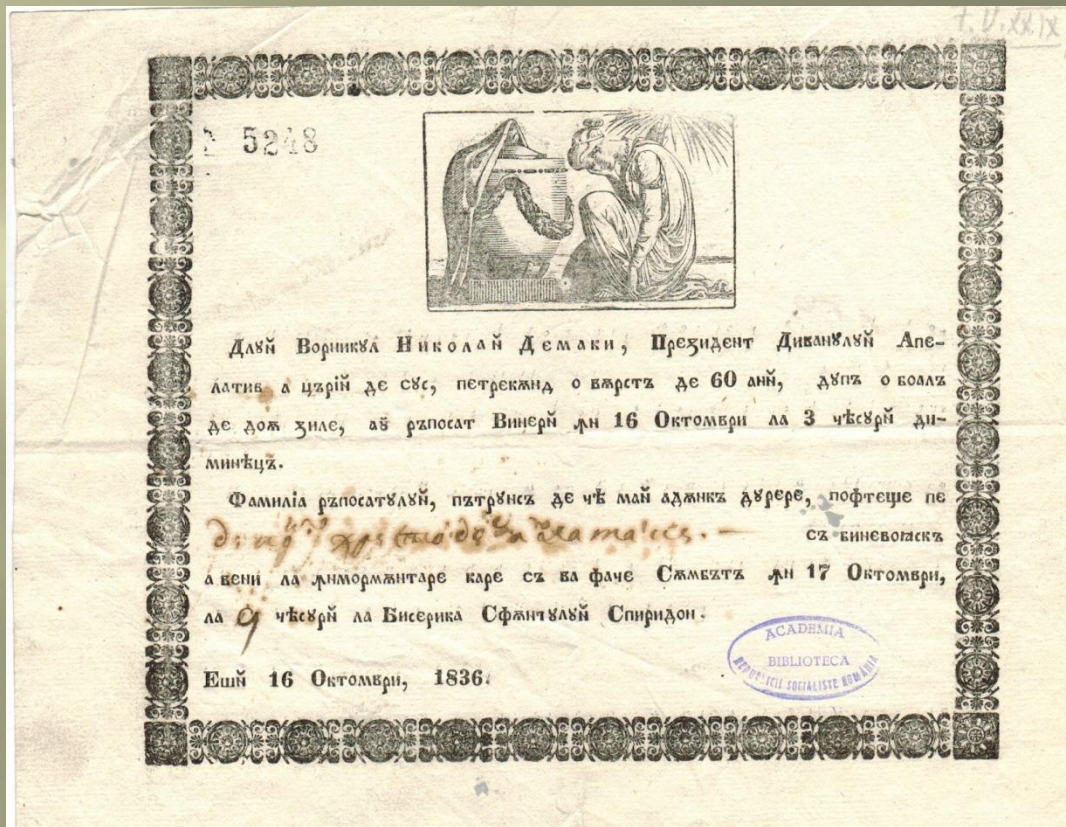 t. V. XXIX
5248
Длꙋй Ворникꙋл Николай Демаки, Президент Диванꙋлꙋй Апе-
латив а църїй де сꙋс, петрекѫнд о вѫрстъ де 60 анй, дꙋпъ о боалъ
де доѫ зиле, аꙋ ръпосат Винерй ꙟн 16 Октомври ла 3 чѣсꙋрй ди-
минѣцъ.
Фамилїа ръпосатꙋлꙋй, пътрꙋнсъ де чѣ май адѫнкъ дꙋрере, пофтеще пе
съ биневоѩскъ
а вени ла ꙟнмормѫнтаре каре съ ва фаче Сѫмбътъ ꙟн 17 Октомври,
ла 9 чѣсꙋрй ла Бисерика Сфѫнтꙋлꙋй Спиридон.
Ешй 16 Октомври, 1836.
ACADEMIA
BIBLIOTECA
REPUBLICII SOCIALISTE ROMÂNIA